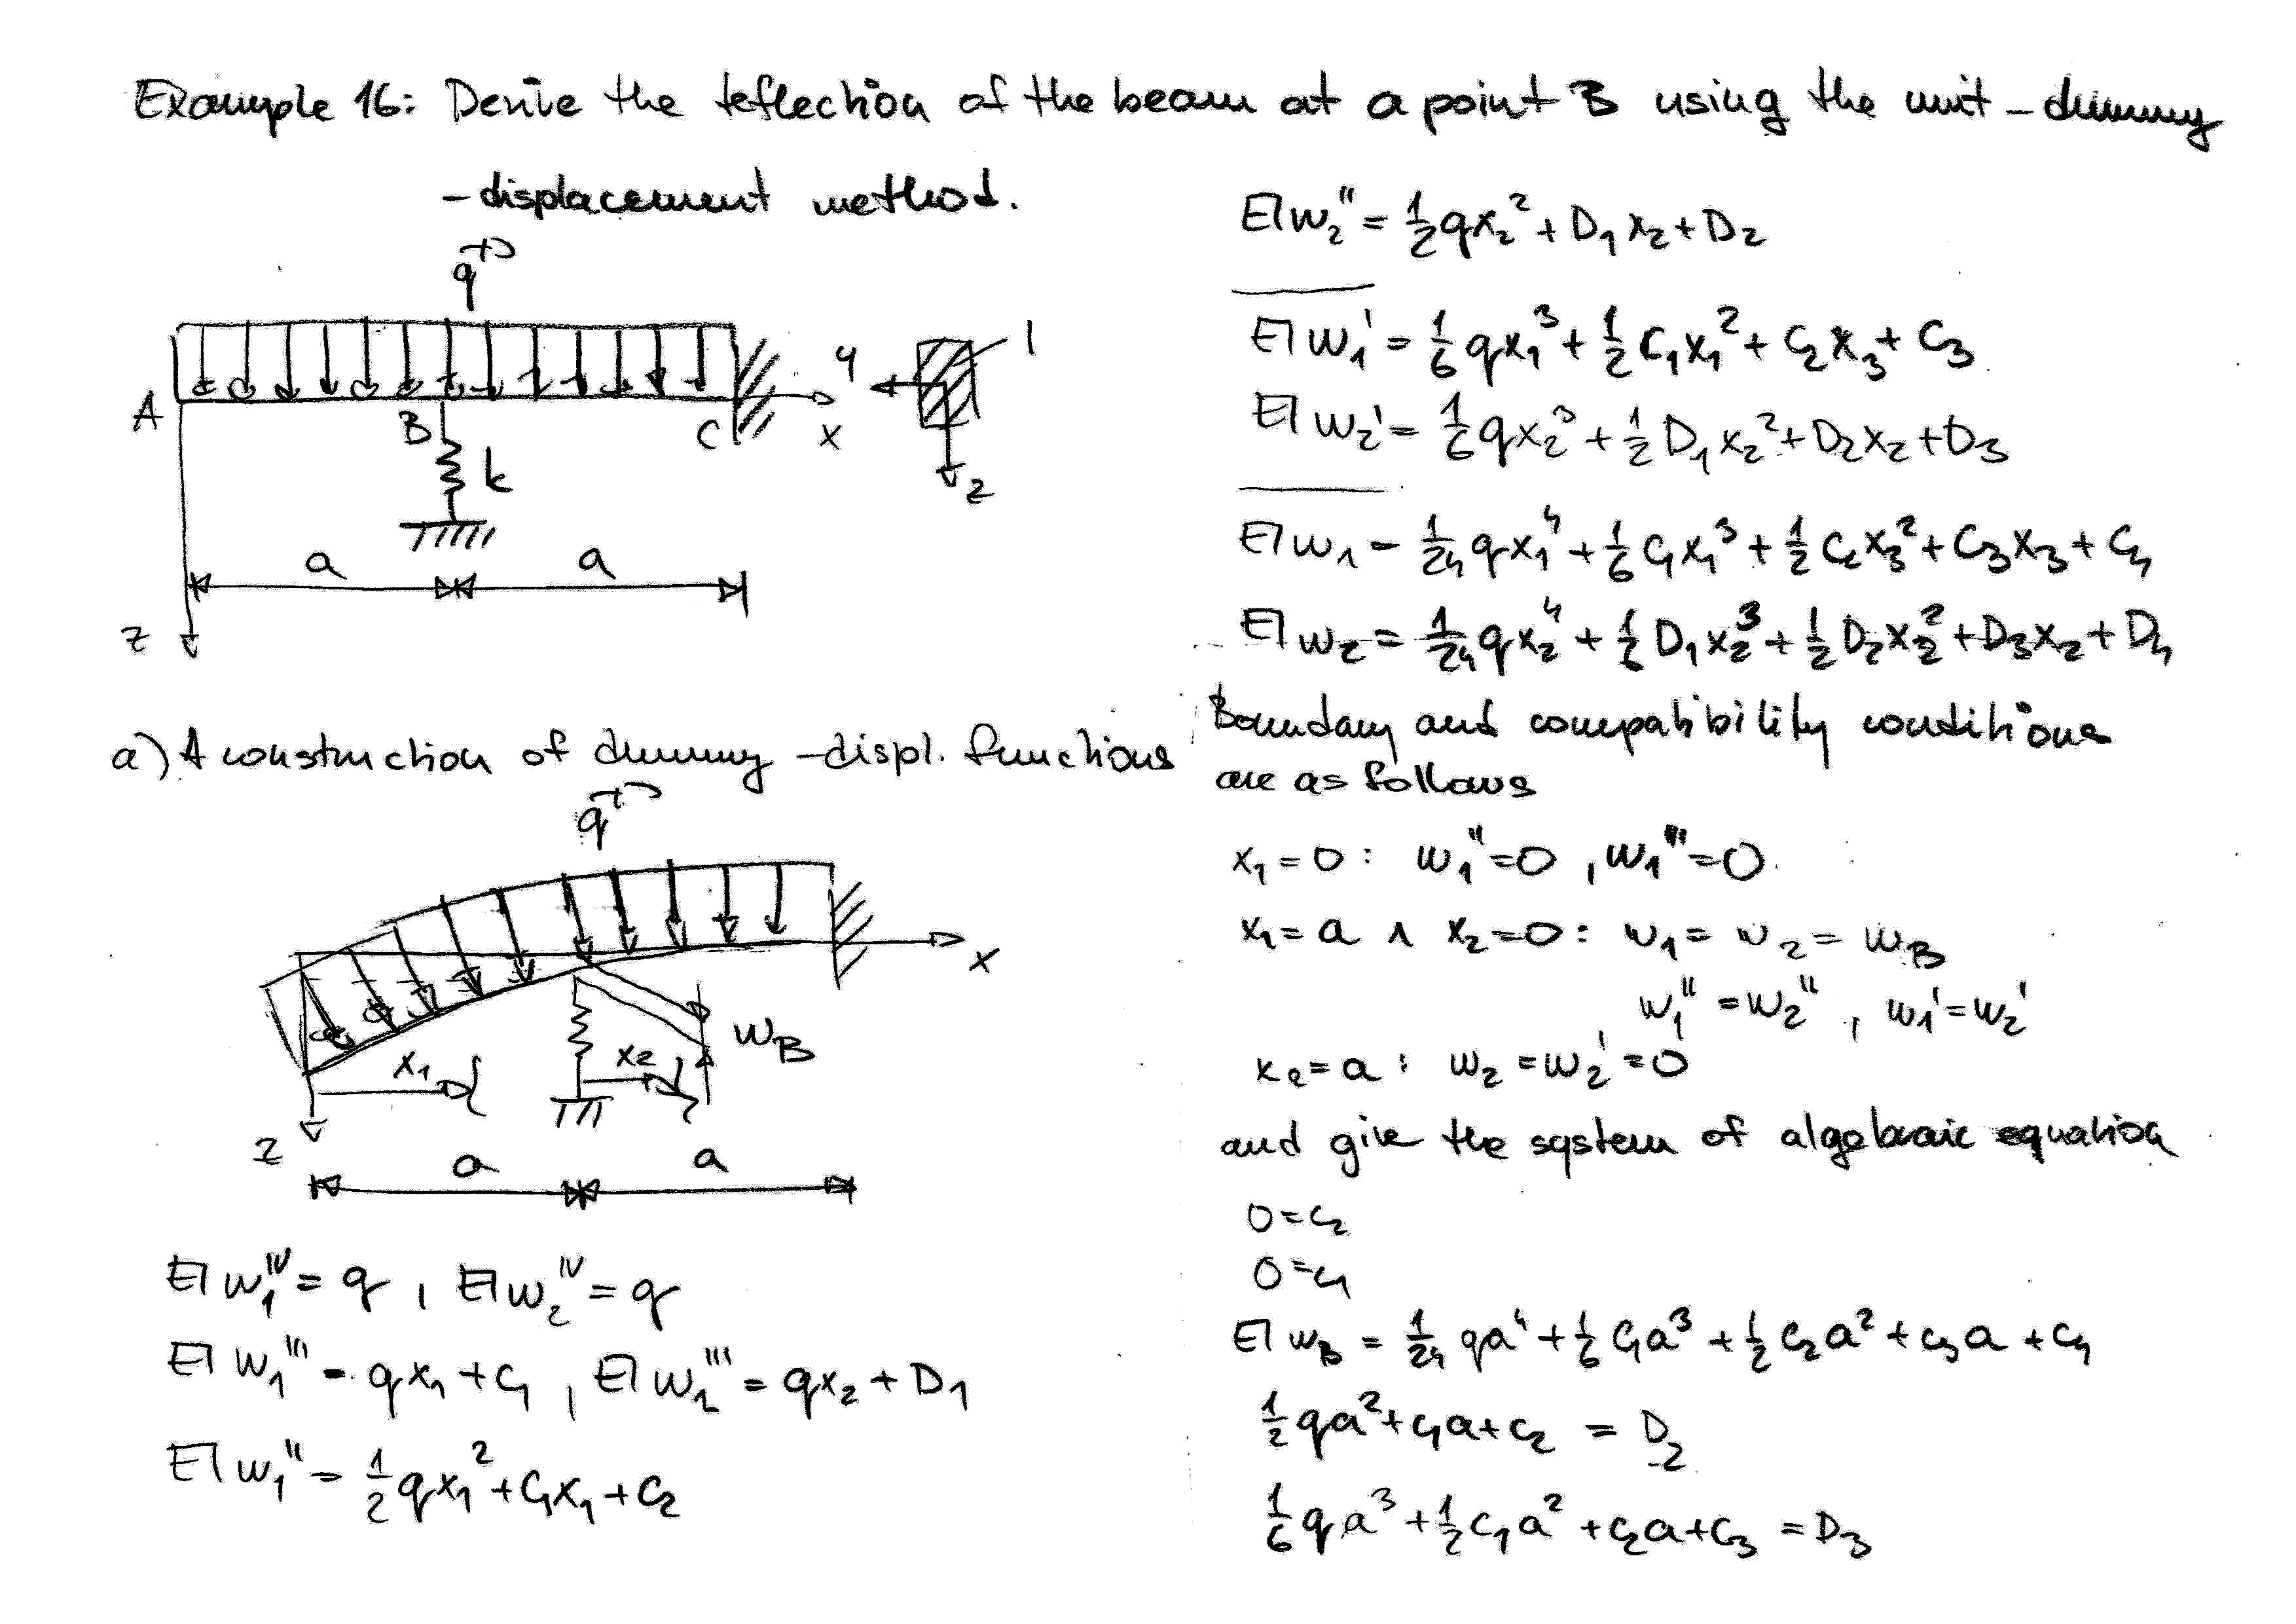 Example 16: Derive the teflection of the beam at a point B using the unit-dummy
-displacement method.
q
A
B
C
k
x
y
1
z
a
a
z
a) A construction of dummy-displ. functions
q
x
w_B
x₁
x₂
z
a
a
EI w₁ᴵⱽ = q , EI w₂ᴵⱽ = q
EI w₁''' = qx₁ + C₁ , EI w₂''' = qx₂ + D₁
EI w₁'' = 1/2 qx₁² + C₁x₁ + C₂
EI w₂'' = 1/2 qx₂² + D₁x₂ + D₂
EI w₁' = 1/6 qx₁³ + 1/2 C₁x₁² + C₂x₃ + C₃
EI w₂' = 1/6 qx₂³ + 1/2 D₁x₂² + D₂x₂ + D₃
EI w₁ = 1/24 qx₁⁴ + 1/6 C₁x₁³ + 1/2 C₂x₃² + C₃x₃ + C₄
EI w₂ = 1/24 qx₂⁴ + 1/6 D₁x₂³ + 1/2 D₂x₂² + D₃x₂ + D₄
Boundary and compatibility conditions
are as follows
x₁ = 0 : w₁'' = 0 , w₁''' = 0
x₁ = a ∧ x₂ = 0 : w₁ = w₂ = w_B
w₁'' = w₂'' , w₁' = w₂'
x₂ = a : w₂ = w₂' = 0
and give the system of algebraic equation
0 = C₂
0 = C₁
EI w_B = 1/24 qa⁴ + 1/6 C₁a³ + 1/2 C₂a² + C₃a + C₄
1/2 qa² + C₁a + C₂ = D₂
1/6 qa³ + 1/2 C₁a² + C₂a + C₃ = D₃